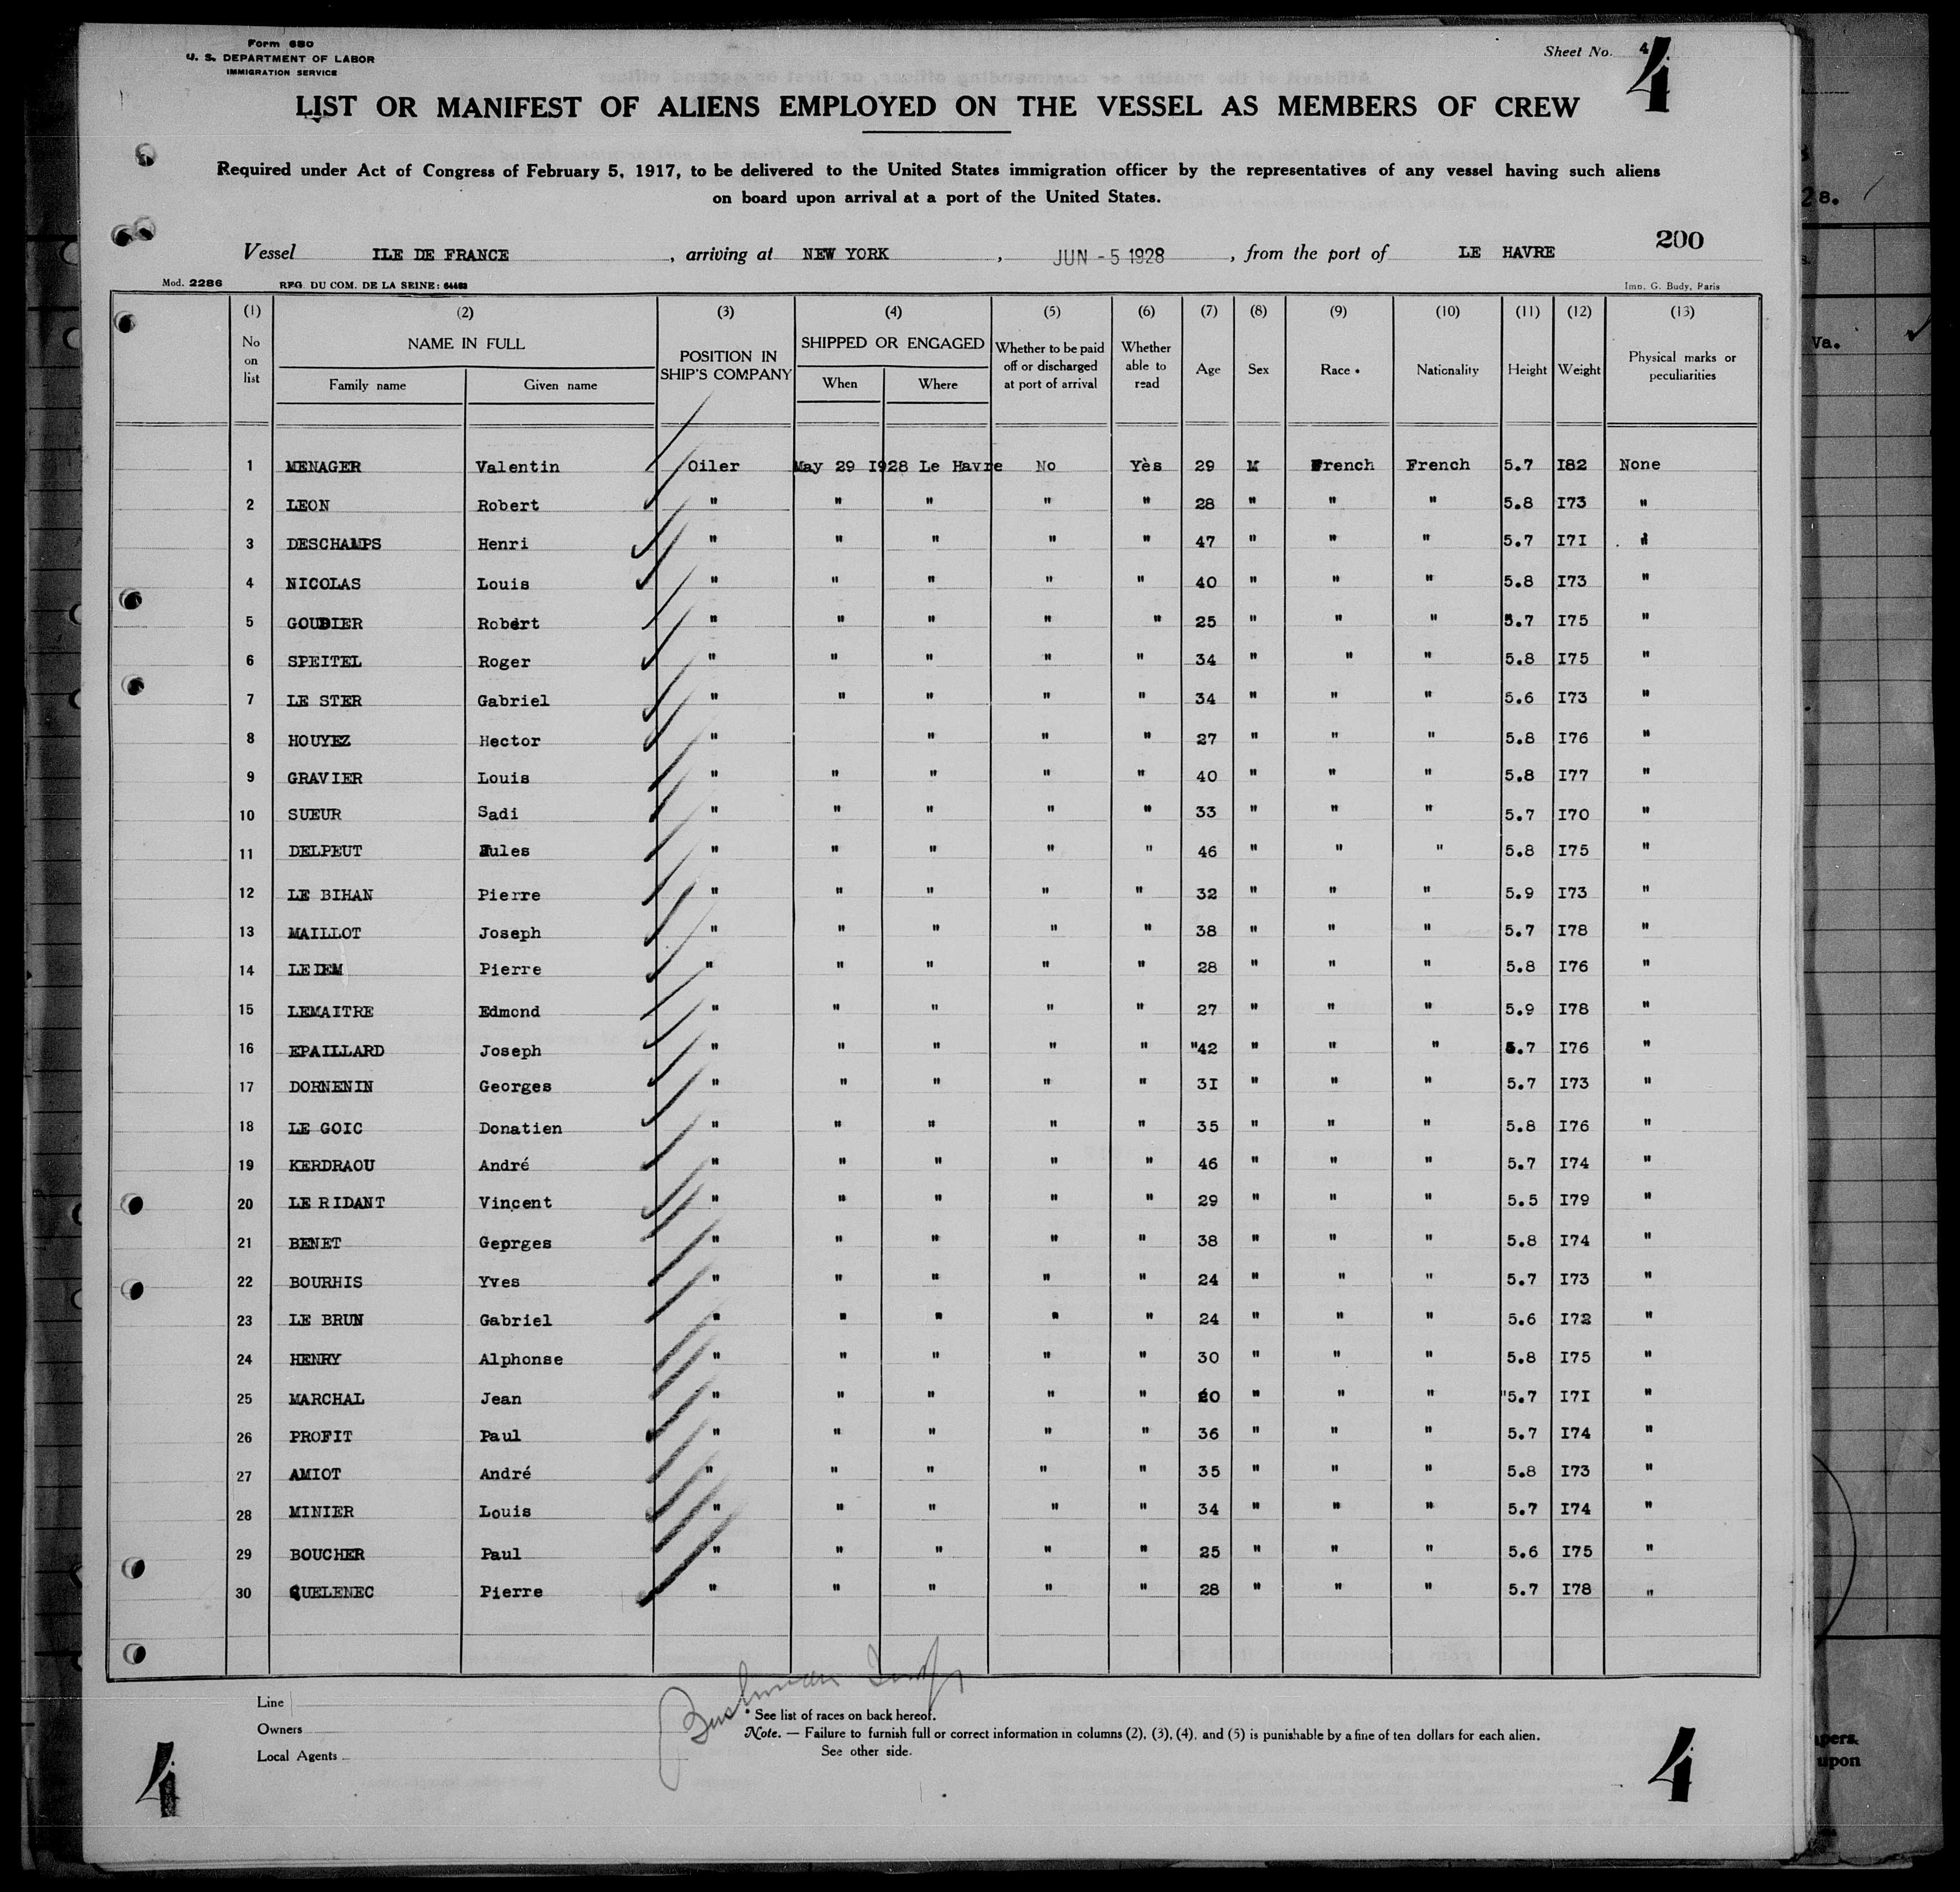 Form 680
U. S. DEPARTMENT OF LABOR
IMMIGRATION SERVICE
Sheet No. 4
4
LIST OR MANIFEST OF ALIENS EMPLOYED ON THE VESSEL AS MEMBERS OF CREW
Required under Act of Congress of February 5, 1917, to be delivered to the United States immigration officer by the representatives of any vessel having such aliens
on board upon arrival at a port of the United States.
200
Vessel ILE DE FRANCE, arriving at NEW YORK, JUN - 5 1928, from the port of LE HAVRE
Mod. 2286 REG. DU COM. DE LA SEINE: 64463 Imp. G. Budy, Paris
(1) (2) (3) (4) (5) (6) (7) (8) (9) (10) (11) (12) (13)
No on list NAME IN FULL POSITION IN SHIP'S COMPANY SHIPPED OR ENGAGED Whether to be paid off or discharged at port of arrival Whether able to read Age Sex Race * Nationality Height Weight Physical marks or peculiarities
Family name Given name When Where
1 MENAGER Valentin Oiler May 29 I928 Le Havre No Yès 29 M French French 5.7 I82 None
2 LEON Robert " " " " " 28 " " " 5.8 I73 "
3 DESCHAMPS Henri " " " " " 47 " " " 5.7 I7I "
4 NICOLAS Louis " " " " " 40 " " " 5.8 I73 "
5 GOUDIER Robert " " " " " 25 " " " 5.7 I75 "
6 SPEITEL Roger " " " " " 34 " " " 5.8 I75 "
7 LE STER Gabriel " " " " " 34 " " " 5.6 I73 "
8 HOUYEZ Hector " " " " 27 " " " 5.8 I76 "
9 GRAVIER Louis " " " " " 40 " " " 5.8 I77 "
10 SUEUR Sadi " " " " " 33 " " " 5.7 I70 "
11 DELPEUT Jules " " " " " 46 " " " 5.8 I75 "
12 LE BIHAN Pierre " " " " " 32 " " " 5.9 I73 "
13 MAILLOT Joseph " " " " " 38 " " " 5.7 I78 "
14 LE DEM Pierre " " " " " 28 " " " 5.8 I76 "
15 LEMAITRE Edmond " " " " " 27 " " " 5.9 I78 "
16 EPAILLARD Joseph " " " " " "42 " " " 5.7 I76 "
17 DORNENIN Georges " " " " " 3I " " " 5.7 I73 "
18 LE GOIC Donatien " " " " " 35 " " " 5.8 I76 "
19 KERDRAOU André " " " " " 46 " " " 5.7 I74 "
20 LE RIDANT Vincent " " " " " 29 " " " 5.5 I79 "
21 BENET Geprges " " " " " 38 " " " 5.8 I74 "
22 BOURHIS Yves " " " " " 24 " " " 5.7 I73 "
23 LE BRUN Gabriel " " " " " 24 " " " 5.6 I72 "
24 HENRY Alphonse " " " " " 30 " " " 5.8 I75 "
25 MARCHAL Jean " " " " " 20 " " " "5.7 I7I "
26 PROFIT Paul " " " " " 36 " " " 5.7 I74 "
27 AMIOT André " " " " " 35 " " " 5.8 I73 "
28 MINIER Louis " " " " " 34 " " " 5.7 I74 "
29 BOUCHER Paul " " " " " 25 " " " 5.6 I75 "
30 QUELENEC Pierre " " " " " 28 " " " 5.7 I78 "
Line
Owners
Local Agents
* See list of races on back hereof.
Note. — Failure to furnish full or correct information in columns (2), (3), (4), and (5) is punishable by a fine of ten dollars for each alien.
See other side.
4
4
Va.
upon